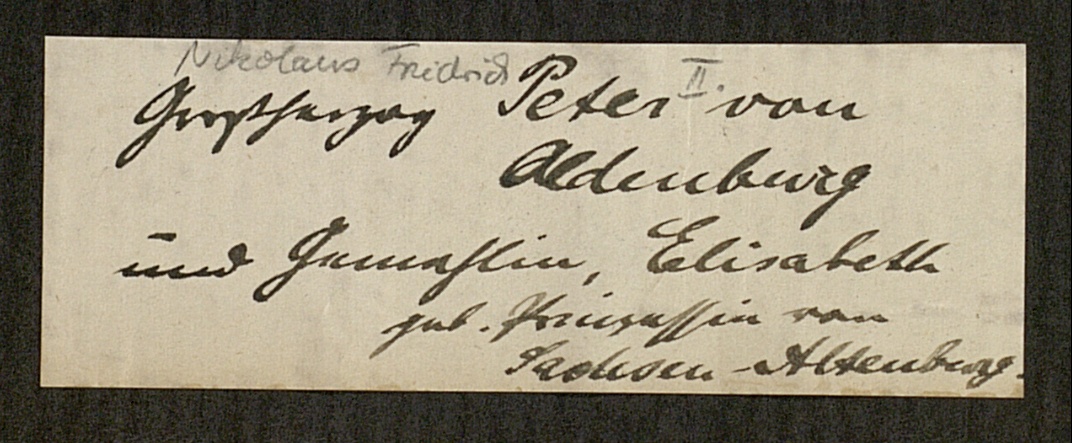 Nikolaus Fridrich II.
Großherzog Peter von
Oldenburg
und Gemahlin, Elisabeth
geb. Prinzessin von
Sachsen-Altenburg.